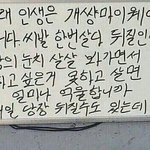 래 인생은 개썅마이웨이
다. 씨발 한번살다 뒤질인
의 눈치 살살 봐가면서
하고 싶은거 못하고 살면
얼마나 억울합니까
내일 당장 뒤질수도 있는데